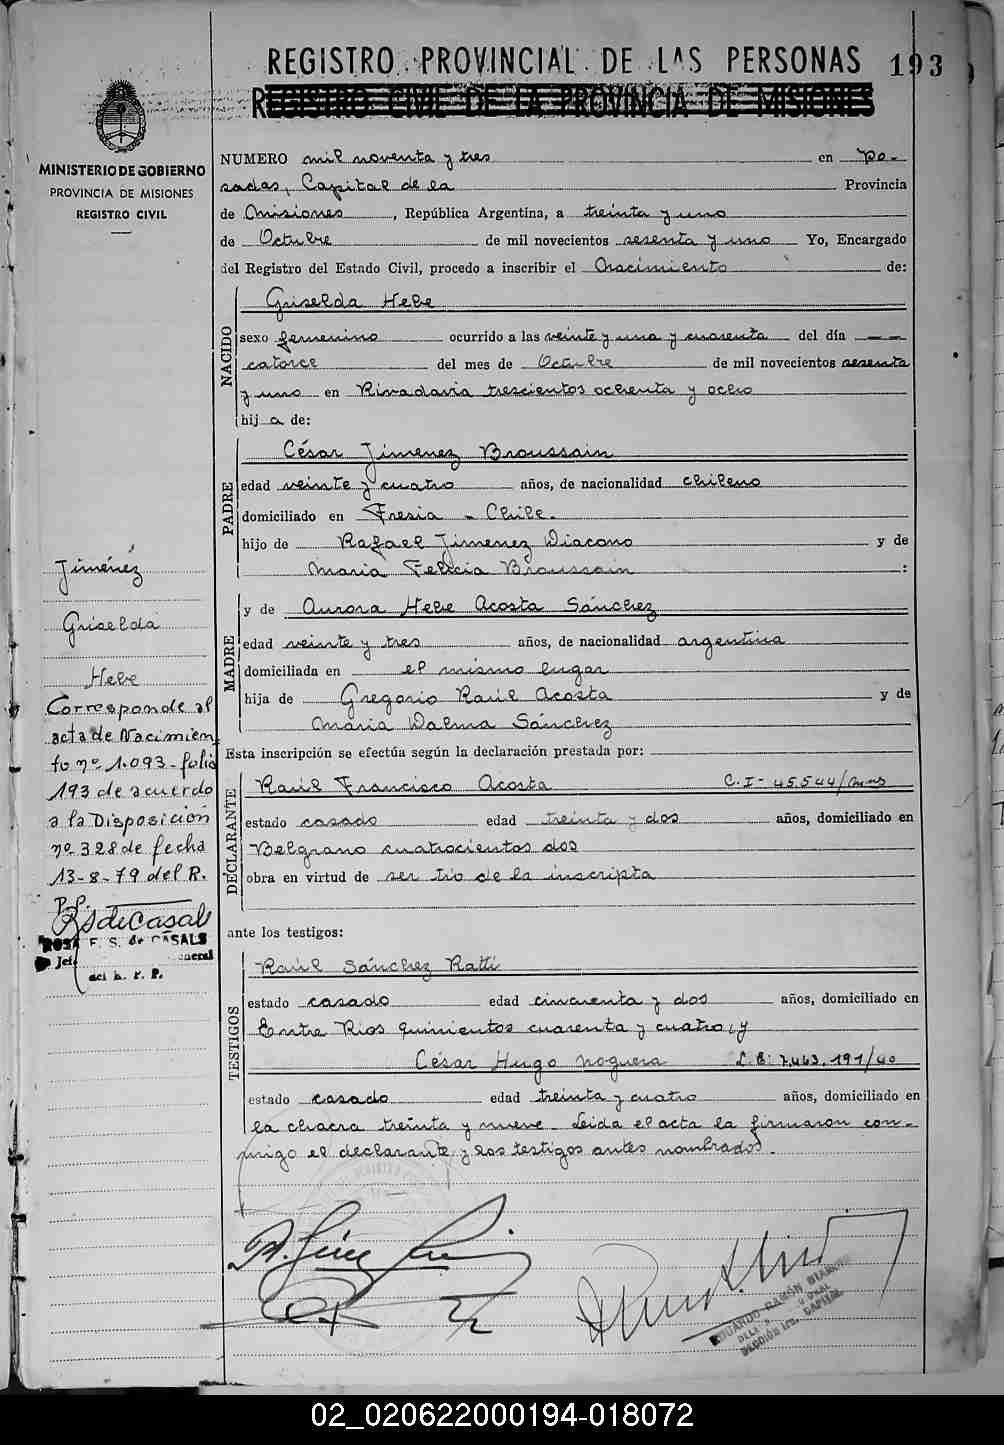 REGISTRO PROVINCIAL DE LAS PERSONAS
193
REGISTRO CIVIL DE LA PROVINCIA DE MISIONES
MINISTERIO DE GOBIERNO
PROVINCIA DE MISIONES
REGISTRO CIVIL
NUMERO mil noventa y tres en Po-
sadas, Capital de la Provincia
de Misiones, República Argentina, a treinta y uno
de Octubre de mil novecientos sesenta y uno Yo, Encargado
del Registro del Estado Civil, procedo a inscribir el Nacimiento de:
NACIDO
Griselda Hebe
sexo femenino ocurrido a las veinte y una y cuarenta del día — —
catorce del mes de Octubre de mil novecientos sesenta
y uno en Rivadavia trescientos ochenta y ocho
hija de:
PADRE
César Jimenez Broussain
edad veinte y cuatro años, de nacionalidad chileno
domiciliado en Fresia - Chile.
hijo de Rafael Jimenez Diacono y de
Maria Felicia Broussain :
MADRE
y de Aurora Hebe Acosta Sánchez
edad veinte y tres años, de nacionalidad argentina
domiciliada en el mismo lugar
hija de Gregorio Raúl Acosta y de
Maria Dalma Sánchez
Esta inscripción se efectúa según la declaración prestada por:
DECLARANTE
Raúl Francisco Acosta C.I- 45.544/mns
estado casado edad treinta y dos años, domiciliado en
Belgrano cuatrocientos dos
obra en virtud de ser tío de la inscripta
ante los testigos:
TESTIGOS
Raúl Sánchez Ratti
estado casado edad cincuenta y dos años, domiciliado en
Entre Rios quinientos cuarenta y cuatro, y
César Hugo Noguera L.E. 7.463.191/40
estado casado edad treinta y cuatro años, domiciliado en
la chacra treinta y nueve. Leida el acta la firmaron con-
migo el declarante y los testigos antes nombrados.
Jiménez
Griselda
Hebe
Corresponde al
acta de Nacimien
to nº 1.093-folio
193 de acuerdo
a la Disposición
nº 328 de fecha
13-8-79 del R.
P.P.
RSdeCasals
ROSA E. S. de CASALS
Jefe General
del R. P. P.
EDUARDO RAMÓN
SECCIÓN 1ra. CAPITAL
02_020622000194-018072